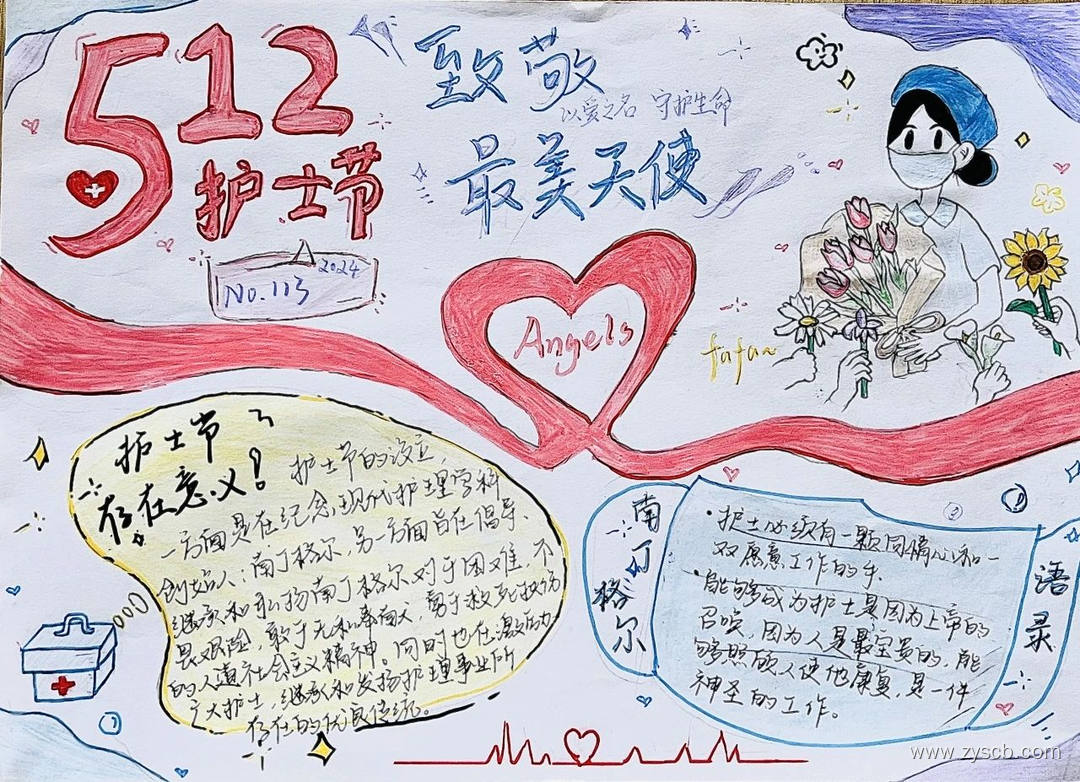 512
护士节
致敬
以爱之名 守护生命
最美天使
2024
No.113
Angels
fufu~
护士节
存在意义?
护士节的设立,
一方面是在纪念现代护理学科
创始人:南丁格尔,另一方面旨在倡导、
继承和弘扬南丁格尔对于困难,不
畏艰险,敢于无私奉献,勇于救死扶伤
的人道社会主义精神。同时也在激励
广大护士,继承和发扬护理事业所
存在的优良传统。
南丁格尔
·护士必须有一颗同情心和一
双愿意工作的手。
·能够成为护士是因为上帝的
召唤,因为人是最宝贵的,能
够照顾人使他康复,是一件
神圣的工作。
语录
www.zyscb.com